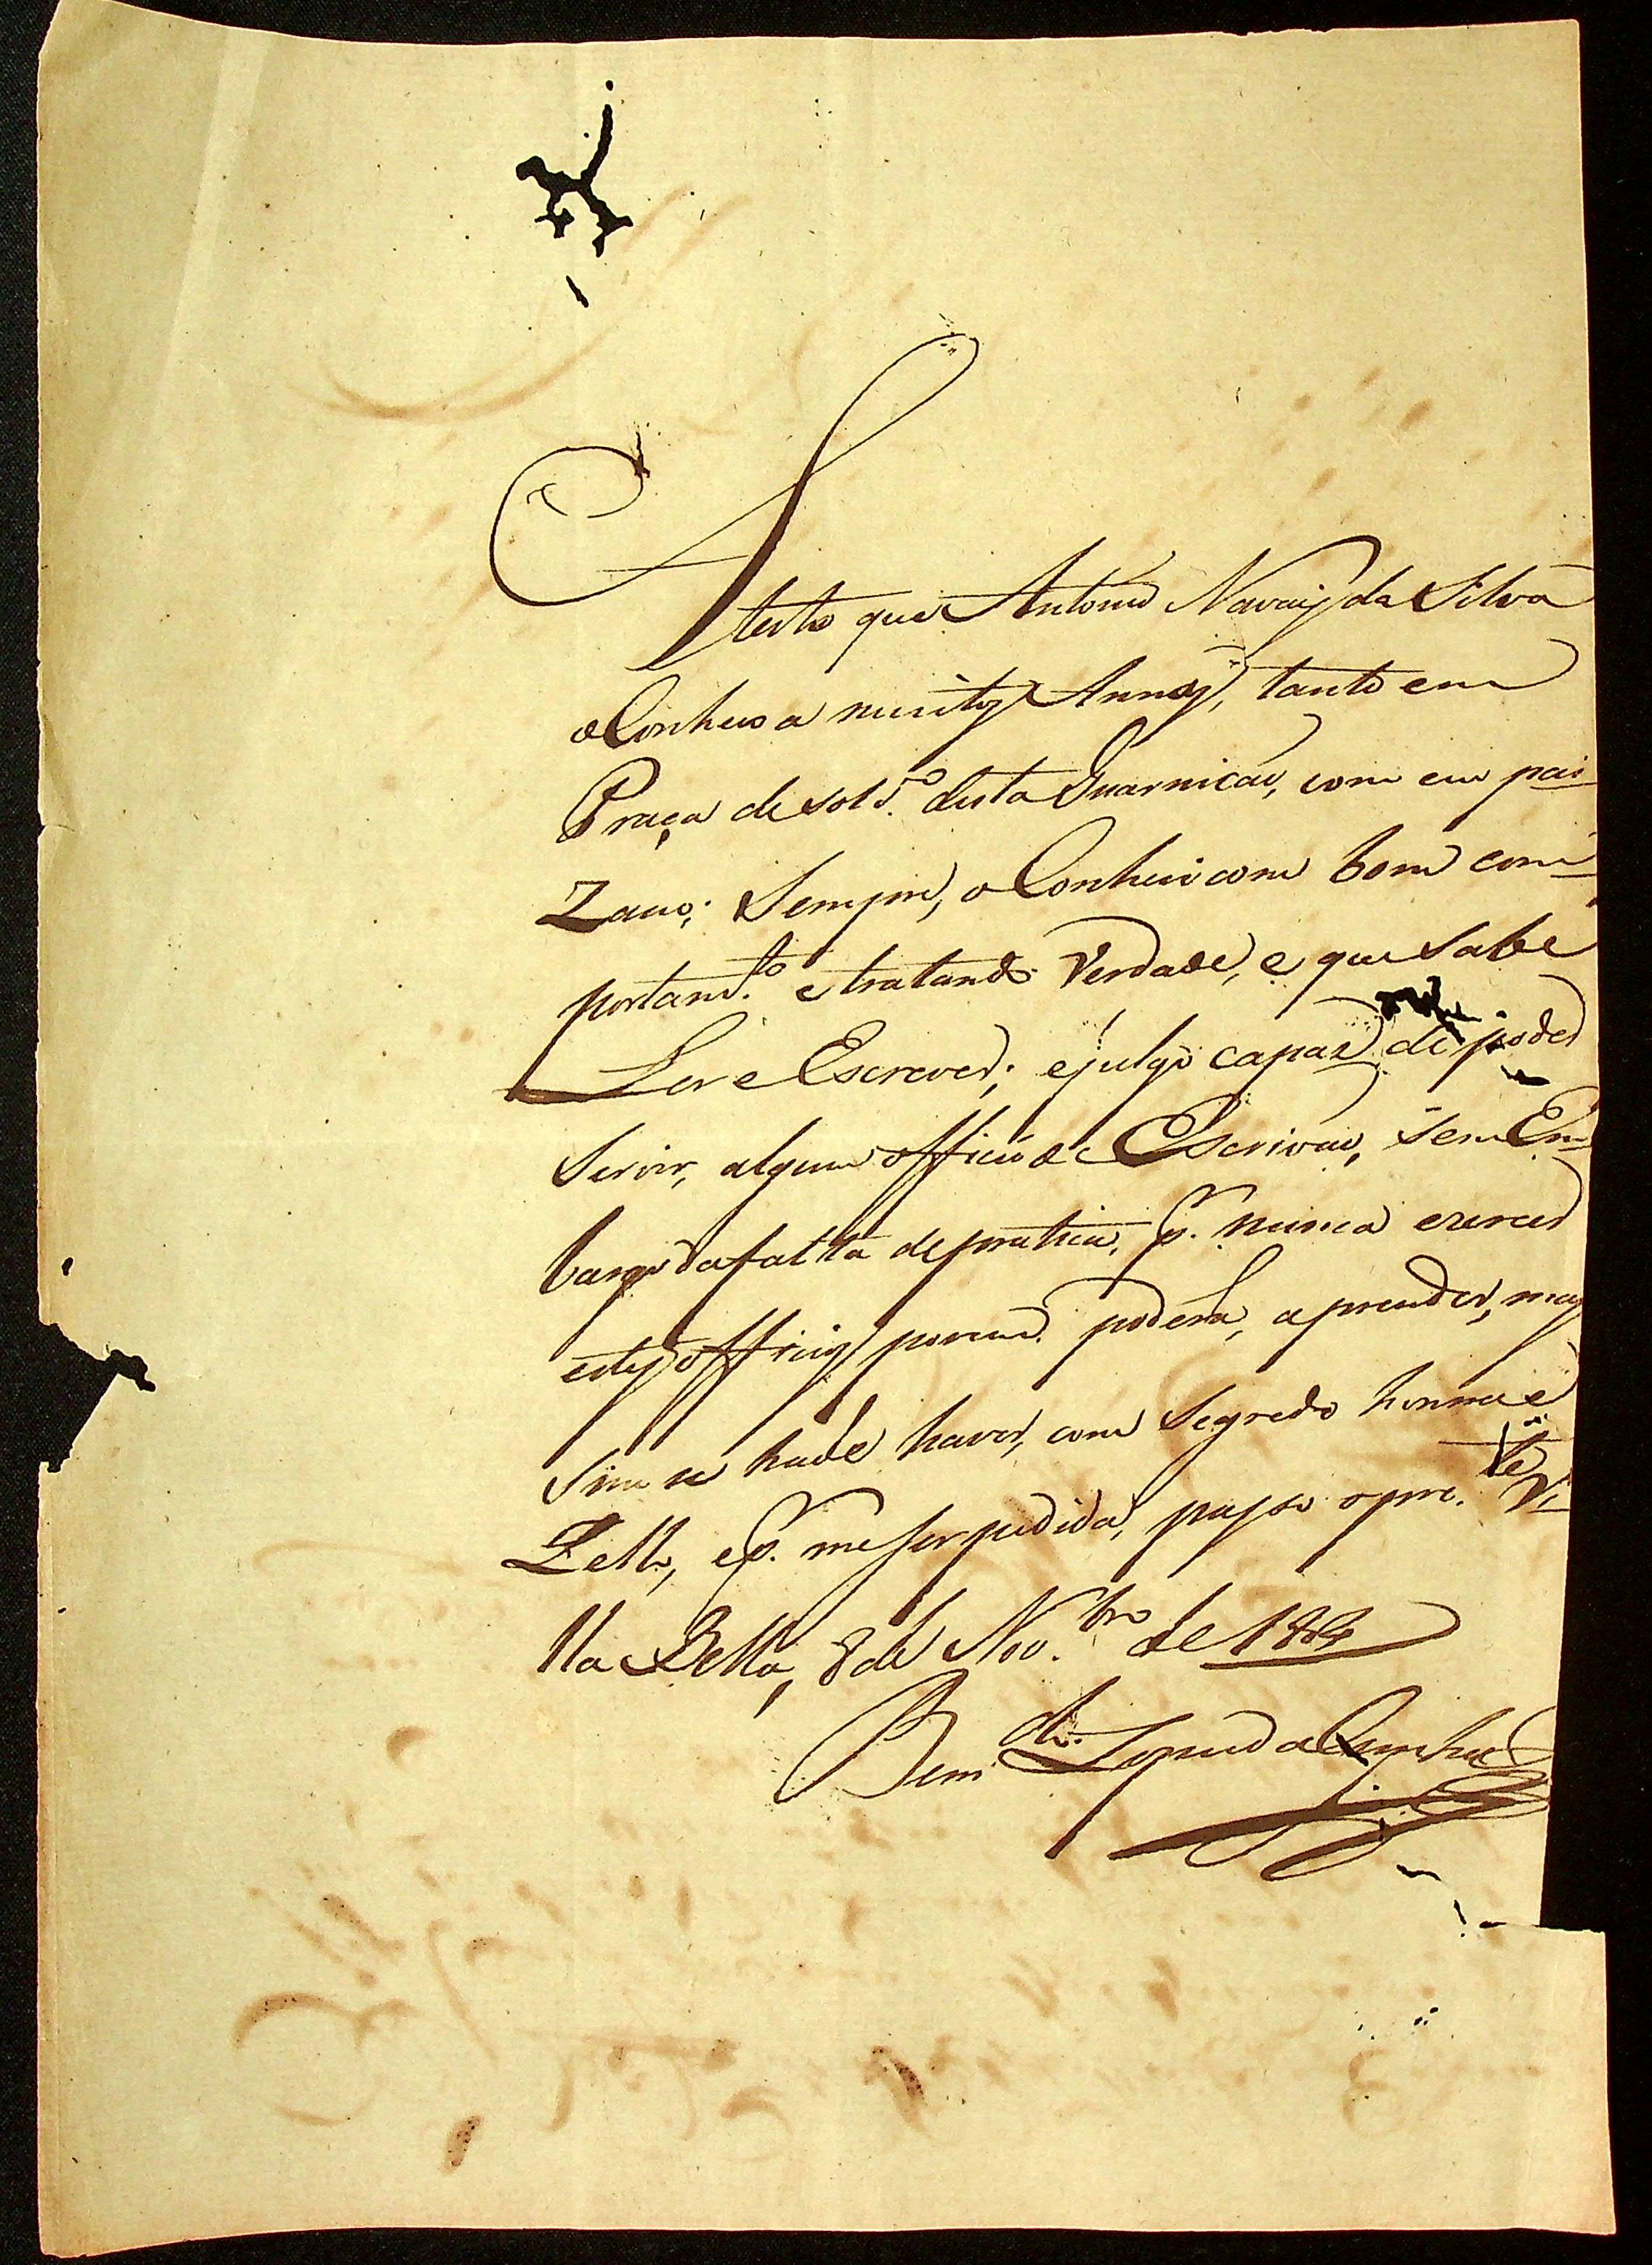 Atesto que Antonio Navais da Silva
o Conheso a muitos Annos, tanto em
Praça de sold.º desta Guarnicao, com em pai
Zano; Sempre, o Conheci com bom com
portam.to e tratando Verdade, e que Sabe
Ler e Escrever; e julgo capaz de poder
Servir, algum officio de Escrivao, sem Em
bargo da falta de pratica, p. nunca exercer
estes officios porem. poderá, aprender, mas
sim se hade haver, com Segredo honra e
Zello, e p. me ser pedida, passo o pre.te Vi
lla Bella, 8 de Nov.bro de
Ben.do Lopes da Cunha